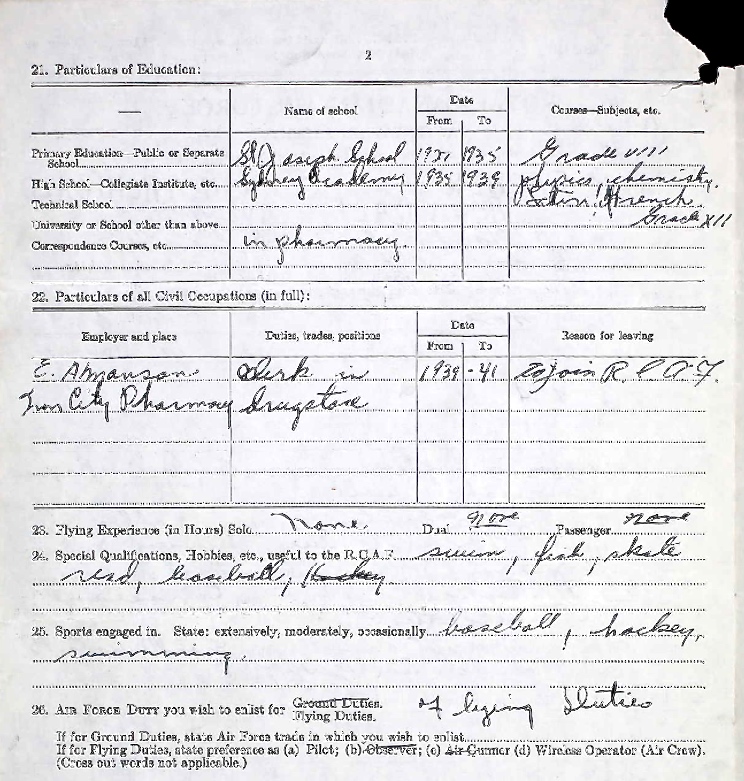 2
21. Particulars of Education:
Name of school
Date
From To
Courses—Subjects, etc.
Primary Education—Public or Separate School St Joseph School 1921 1935 Grade VIII
High School—Collegiate Institute, etc. Sydney Academy 1935 1939 physics, chemistry,
Technical School French
University or School other than above Grade XII
Correspondence Courses, etc. in pharmacy.
22. Particulars of all Civil Occupations (in full):
Employer and place
Duties, trades, positions
Date
From To
Reason for leaving
Clerk in 1939 - 41 To join R C A F.
City Pharmacy drugstore
23. Flying Experience (in Hours) Solo None. Dual None Passenger None
24. Special Qualifications, Hobbies, etc., useful to the R.C.A.F. swim, fish, skate
read, baseball, Hockey
25. Sports engaged in. State: extensively, moderately, occasionally baseball, hockey,
swimming.
26. AIR FORCE DUTY you wish to enlist for Ground Duties. Flying Duties. Duties
If for Ground Duties, state Air Force trade in which you wish to enlist
If for Flying Duties, state preference as (a) Pilot; (b) Observer; (c) Air Gunner (d) Wireless Operator (Air Crew).
(Cross out words not applicable.)